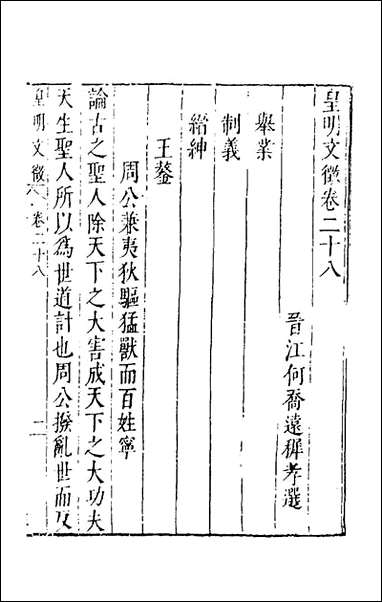 皇明文徵卷二十八
晉江何喬遠穉孝選
舉業
制義
紹紳
王鏊
周公兼夷狄驅猛獸而百姓寧
論古之聖人除天下之大害成天下之大功夫
天生聖人所以爲世道計也周公撥亂世而反
皇明文徵 卷二十八 二